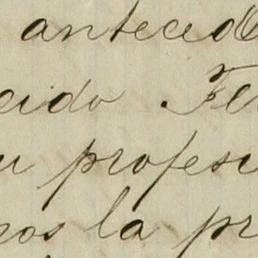 anteced
cido . Fer
u profesi
nos la pr